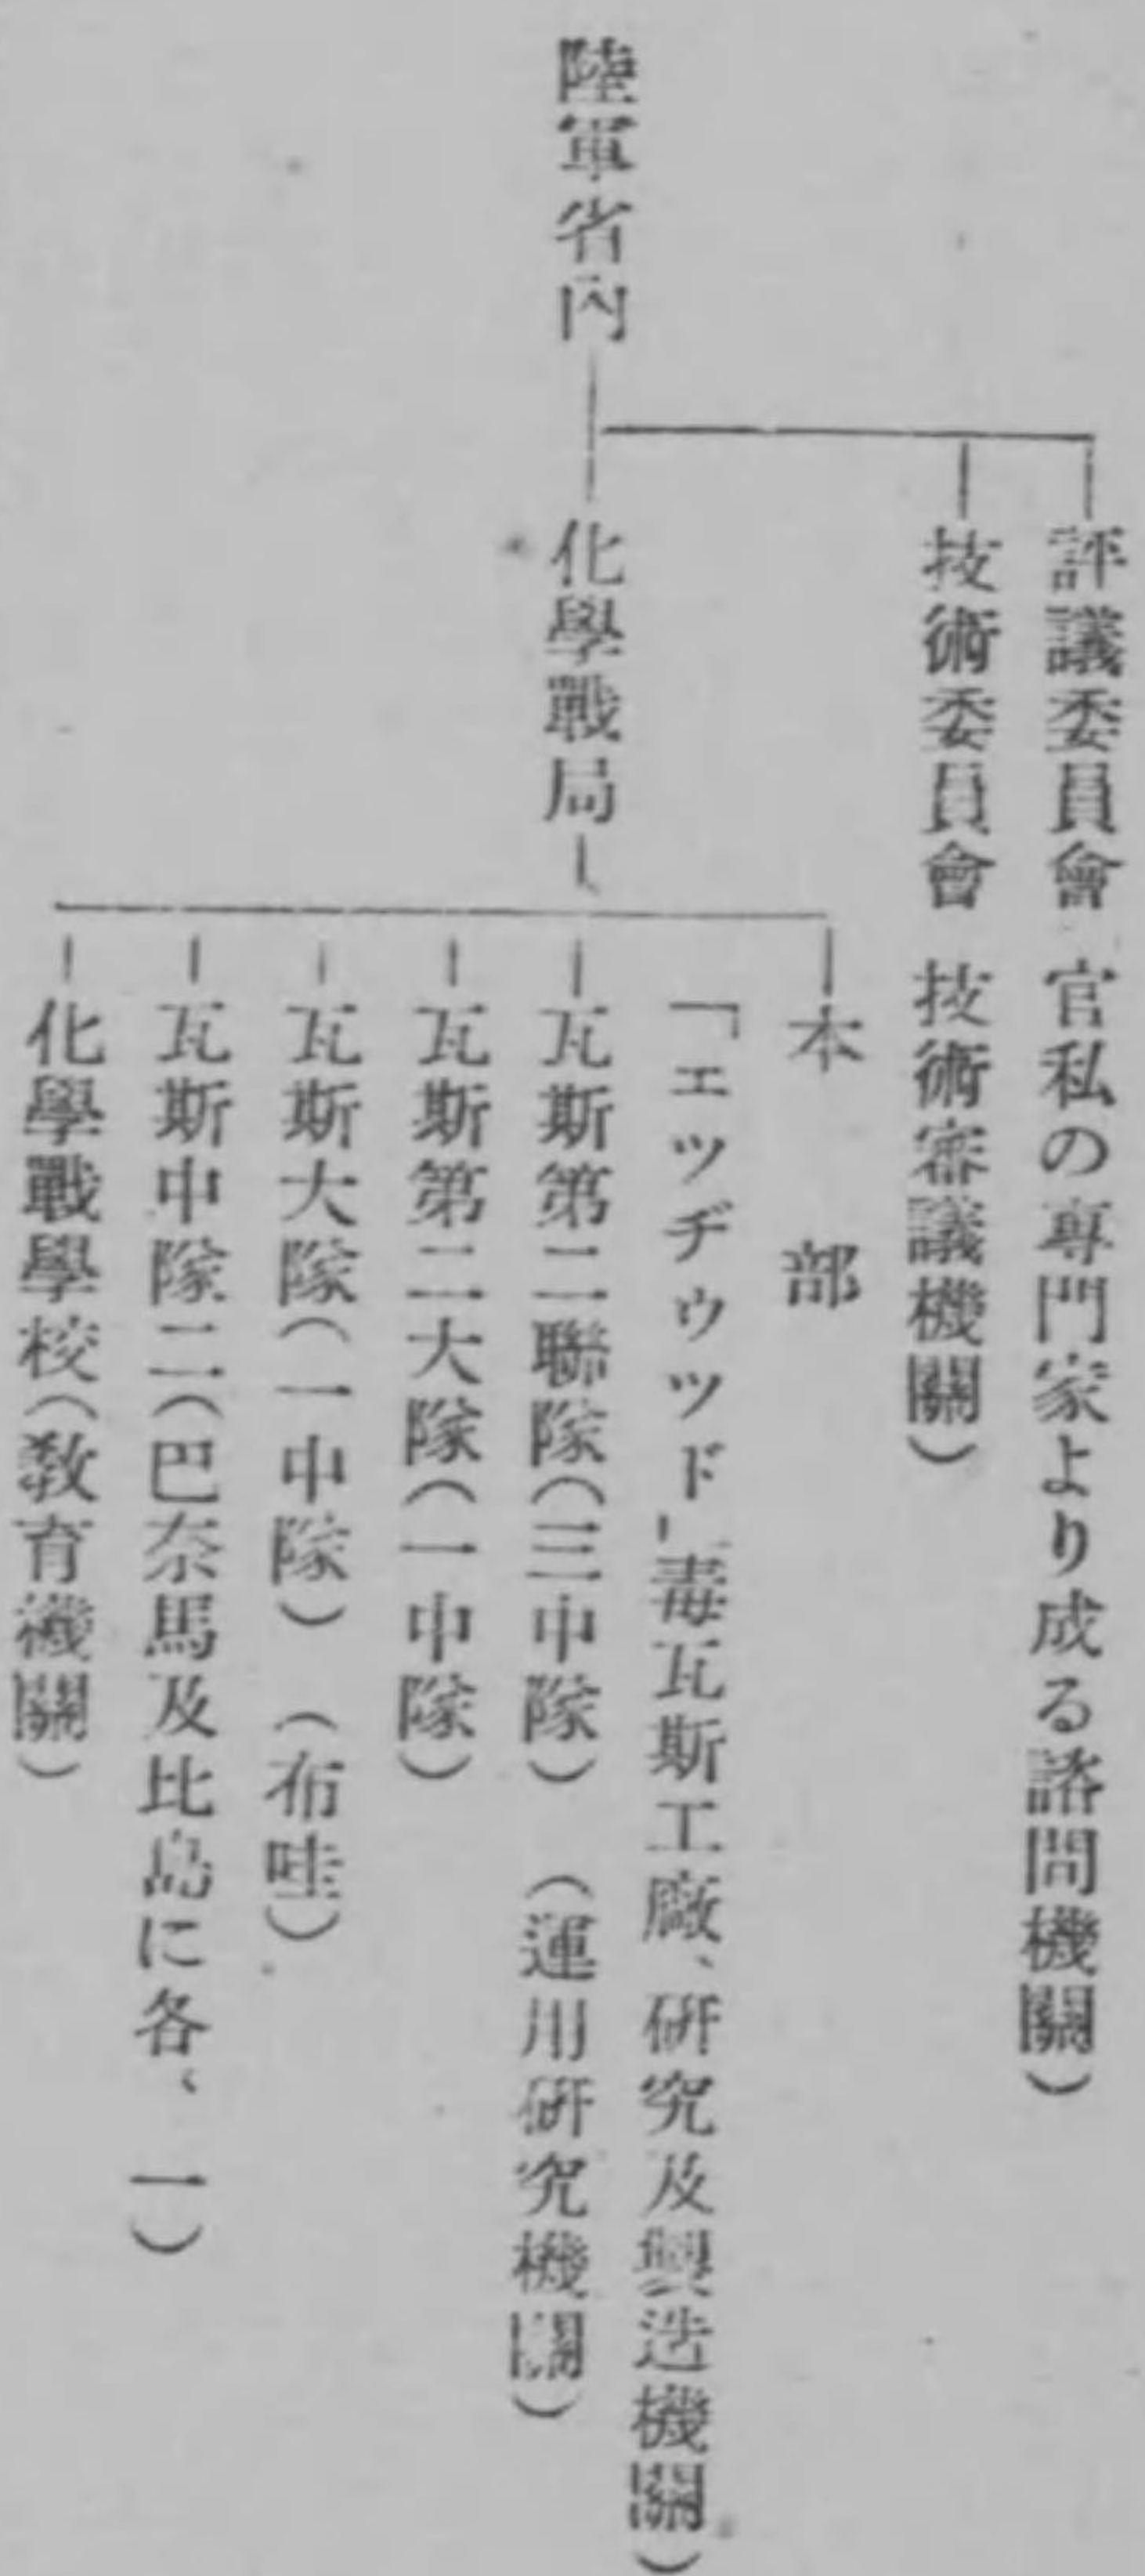 評議委員會 官私の専門家より成る諮問機關)
技術委員會 技術審議機關)
陸軍省內
化學戰局
本部
「エツヂウツド」毒瓦斯工廠、硏究及製造機關)
瓦斯第二聯隊(三中隊) (運用硏究機關)
瓦斯第二大隊(一中隊)
瓦斯大隊(一中隊) (布哇)
瓦斯中隊二(巴奈馬及比島に各、一)
化學戰學校(敎育機關)